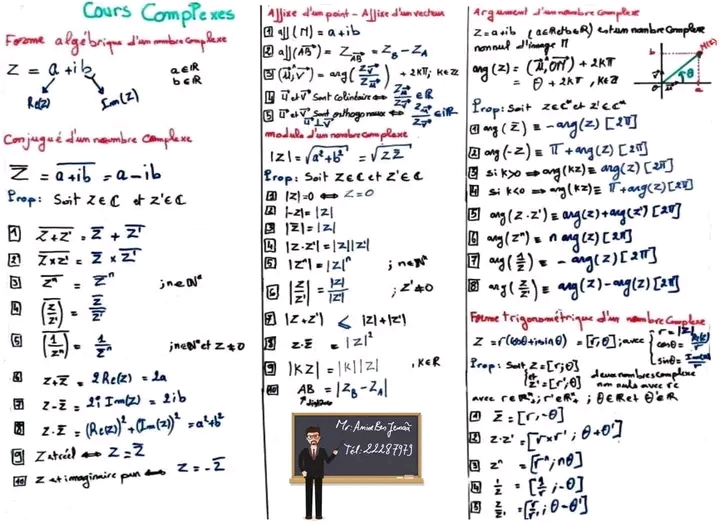 Cours Complexes
Forme algébrique d'un nombre Complexe
Z = a + ib
a ∈ IR
b ∈ IR
Re(Z) Im(Z)
Conjugué d'un nombre Complexe
Z̅ = \overline{a+ib} = a - ib
Prop: Soit Z ∈ ℂ et Z' ∈ ℂ
1 \overline{Z+Z'} = Z̅ + \overline{Z'}
2 \overline{Z×Z'} = Z̅ × \overline{Z'}
3 \overline{Z^n} = Z̅^n ; n ∈ IN*
4 \overline{(Z/Z')} = Z̅/\overline{Z'}
5 \overline{(1/Z^n)} = 1/Z̅^n ; n ∈ IN* et Z ≠ 0
6 Z + Z̅ = 2Re(Z) = 2a
7 Z - Z̅ = 2i Im(Z) = 2ib
8 Z · Z̅ = (Re(Z))² + (Im(Z))² = a² + b²
9 Z est réel ⟺ Z = Z̅
10 Z est imaginaire pur ⟺ Z = -Z̅
Affixe d'un point - Affixe d'un vecteur
1 aff(M) = a + ib
2 aff(AB⃗) = Z_{AB⃗} = Z_B - Z_A
3 (u⃗, v⃗) = arg(Z_{v⃗}/Z_{u⃗}) + 2kπ; k ∈ Z
4 u⃗ et v⃗ sont colinéaire ⟺ Z_{u⃗}/Z_{v⃗} ∈ IR
5 u⃗ et v⃗ sont orthogonaux ⟺ Z_{u⃗}/Z_{v⃗} ∈ iIR
u⃗ ⊥ v⃗
module d'un nombre complexe
|Z| = √(a² + b²) = √(Z Z̅)
Prop: Soit Z ∈ ℂ et Z' ∈ ℂ
1 |Z| = 0 ⟺ Z = 0
2 |-Z| = |Z|
3 |Z̅| = |Z|
4 |Z · Z'| = |Z||Z'|
5 |Z^n| = |Z|^n ; n ∈ IN*
6 |Z/Z'| = |Z|/|Z'| ; Z' ≠ 0
7 |Z + Z'| ≤ |Z| + |Z'|
8 Z · Z̅ = |Z|²
9 |KZ| = |K||Z| , K ∈ IR
10 AB = |Z_B - Z_A|
↑ distance
Mr: Amine Ben Jemaà
Tél: 22287979
Argument d'un nombre complexe
Z = a + ib (a ∈ IR et b ∈ IR) est un nombre complexe
non nul d'image M
arg(Z) = (u⃗, OM⃗) + 2kπ
= θ + 2kπ, k ∈ Z
M(Z)
b
v⃗
θ
O u⃗ a
Prop: Soit Z ∈ ℂ* et Z' ∈ ℂ*
1 arg(Z̅) ≡ -arg(Z) [2π]
2 arg(-Z) ≡ π + arg(Z) [2π]
3 si k>0 ⟹ arg(kZ) ≡ arg(Z) [2π]
4 si k<0 ⟹ arg(kZ) ≡ π + arg(Z) [2π]
5 arg(Z·Z') ≡ arg(Z) + arg(Z') [2π]
6 arg(Z^n) ≡ n arg(Z) [2π]
7 arg(1/Z) ≡ - arg(Z) [2π]
8 arg(Z/Z') ≡ arg(Z) - arg(Z') [2π]
Forme trigonométrique d'un nombre Complexe
Z = r(cosθ + i sinθ) = [r; θ] ; avec
r = |Z|
cosθ = Re(Z)/r
sinθ = Im(Z)/r
Prop: Soit Z = [r; θ]
et Z' = [r'; θ']
deux nombres complexe
non nuls avec
avec r ∈ IR*₊ ; r' ∈ IR*₊ ; θ ∈ IR et θ' ∈ IR
1 Z̅ = [r, -θ]
2 Z·Z' = [r×r' ; θ + θ']
3 Z^n = [r^n ; nθ]
4 1/Z = [1/r ; -θ]
5 Z/Z' = [r/r' ; θ - θ']